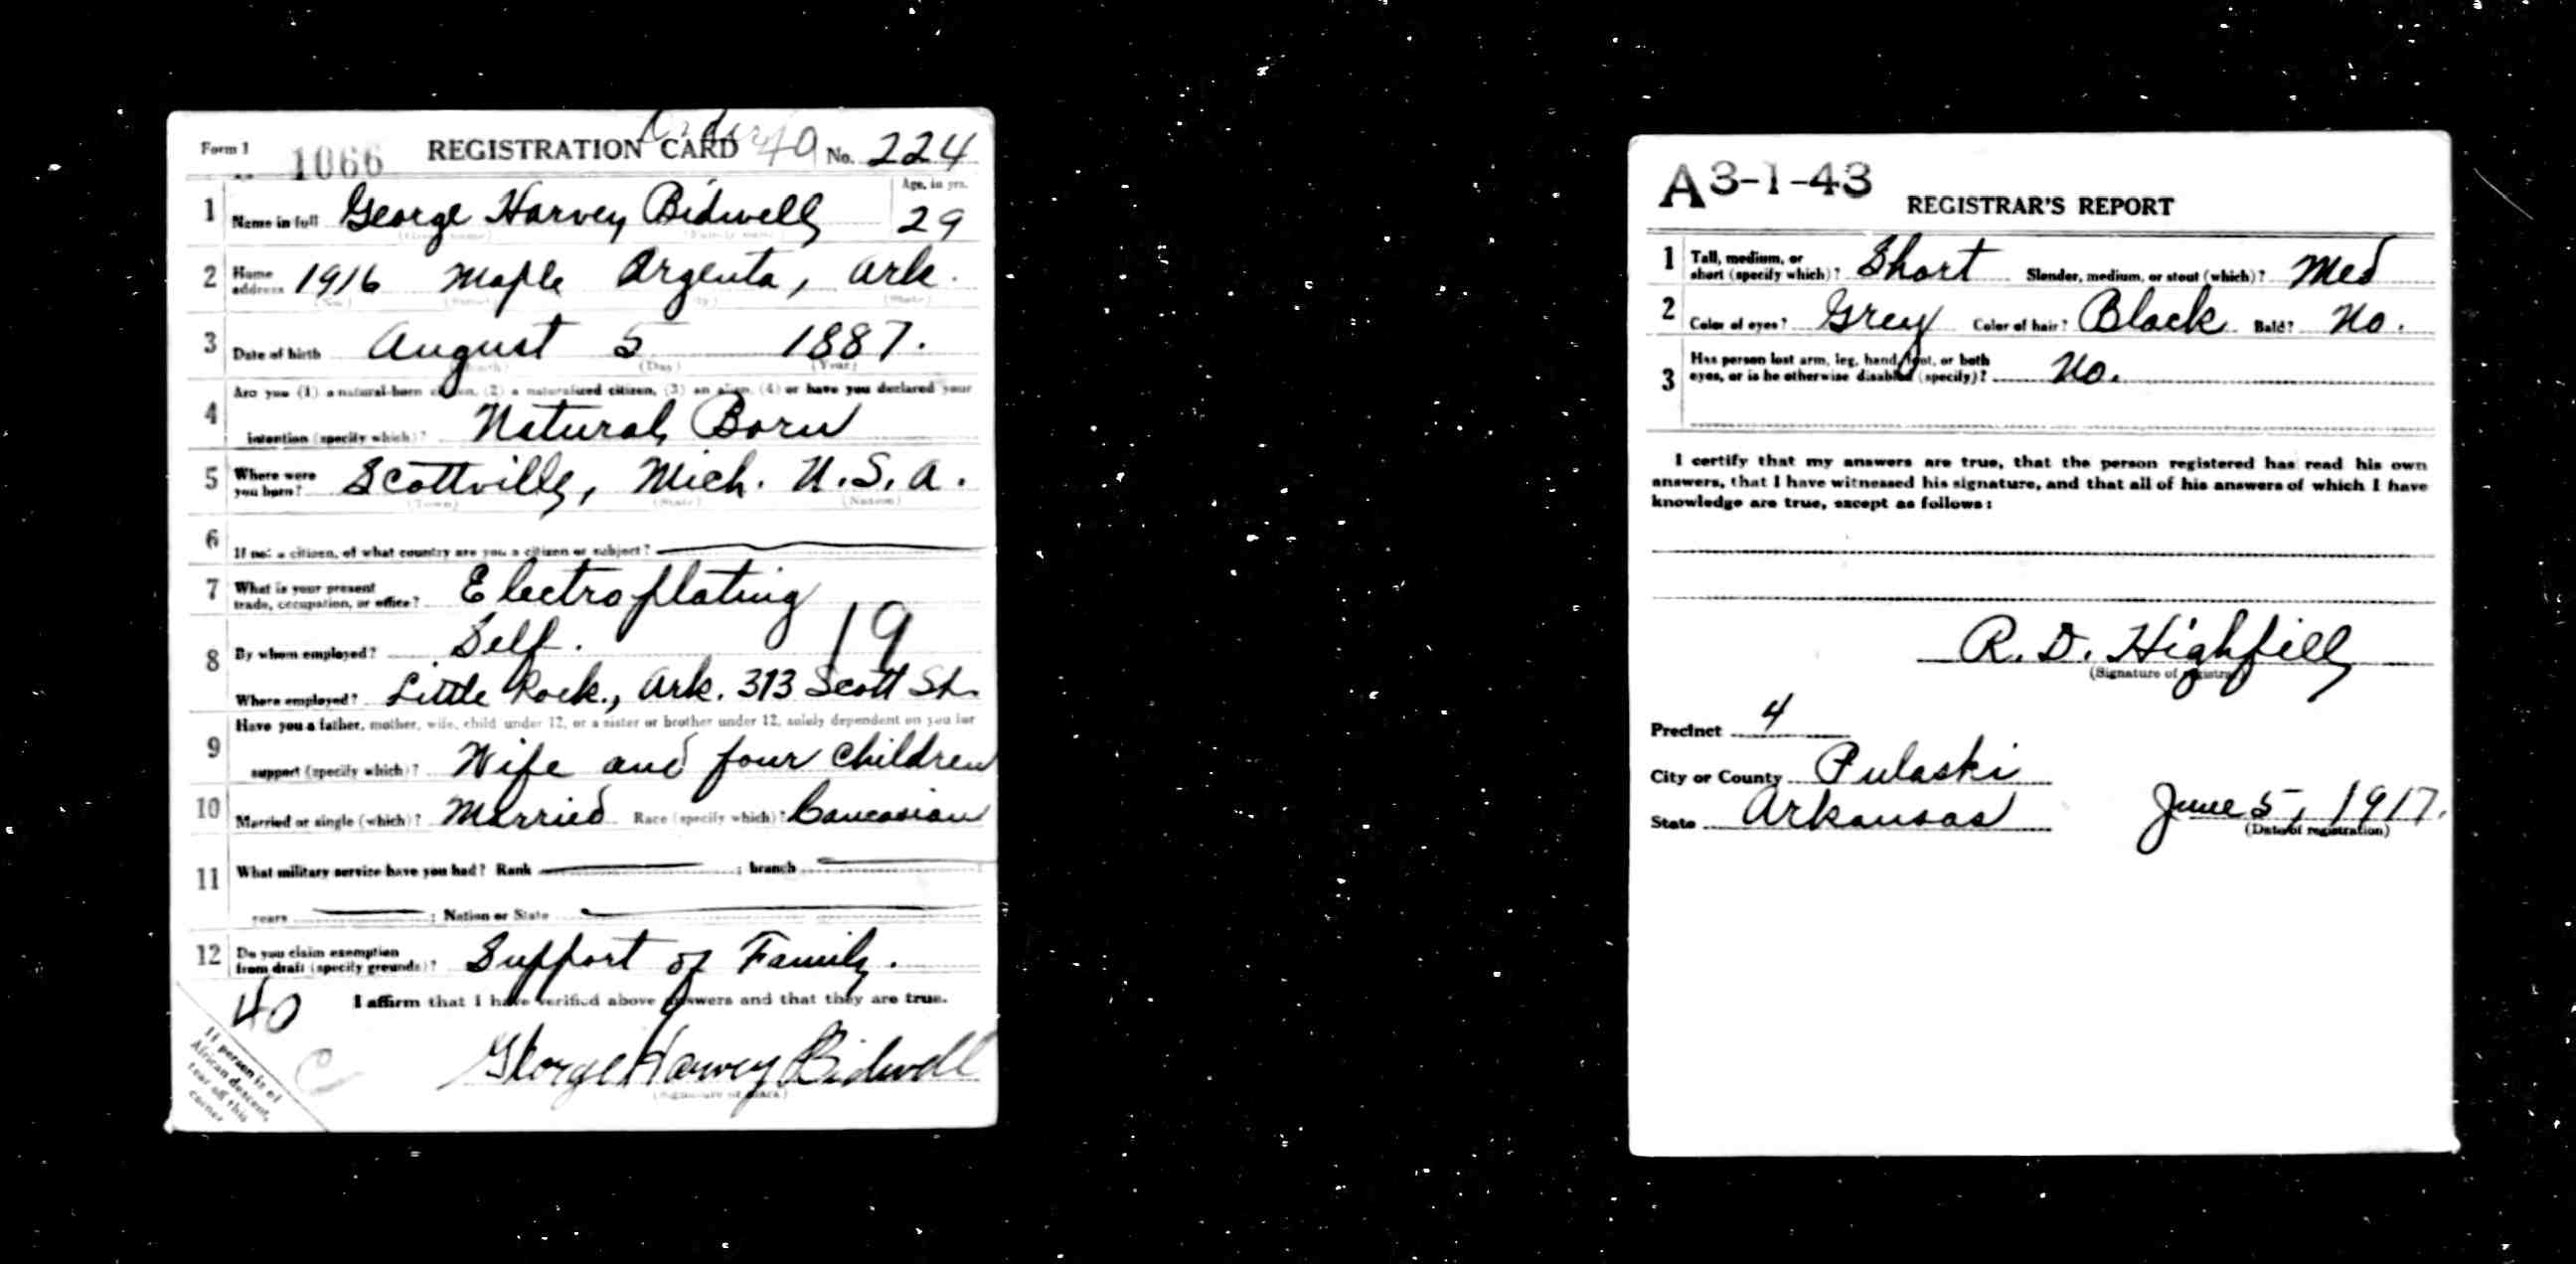 Form 1 1066 REGISTRATION CARD 40 No. 224
Age, in yrs.
1 Name in full George Harvey Bidwell 29
(Given name) (Family name)
2 Home address 1916 Maple Argenta, Ark.
(No.) (Street) (City) (State)
3 Date of birth August 5 1887.
(Month) (Day) (Year)
Are you (1) a natural-born citizen, (2) a naturalized citizen, (3) an alien, (4) or have you declared your
4 intention (specify which)? Natural Born
5 Where were you born? Scottville, Mich. U.S.A.
(Town) (State) (Nation)
6 If not a citizen, of what country are you a citizen or subject?
7 What is your present trade, occupation, or office? Electroplating
19
8 By whom employed? Self.
Where employed? Little Rock., Ark. 313 Scott St.
Have you a father, mother, wife, child under 12, or a sister or brother under 12, solely dependent on you for
9 support (specify which)? Wife and four children
10 Married or single (which)? Married Race (specify which)? Caucasian
11 What military service have you had? Rank ; branch
years ; Nation or State
12 Do you claim exemption from draft (specify grounds)? Support of Family.
40 I affirm that I have verified above answers and that they are true.
George Harvey Bidwell
(Signature or mark)
If person is of
African descent,
tear off this
corner
C
A 3-1-43
REGISTRAR'S REPORT
1 Tall, medium, or short (specify which)? Short Slender, medium, or stout (which)? Med
2 Color of eyes? Grey Color of hair? Black Bald? No.
3 Has person lost arm, leg, hand, foot, or both
eyes, or is he otherwise disabled (specify)? No.
I certify that my answers are true, that the person registered has read his own
answers, that I have witnessed his signature, and that all of his answers of which I have
knowledge are true, except as follows:
R. D. Highfill
(Signature of registrar)
Precinct 4
City or County Pulaski
State Arkansas June 5, 1917.
(Date of registration)